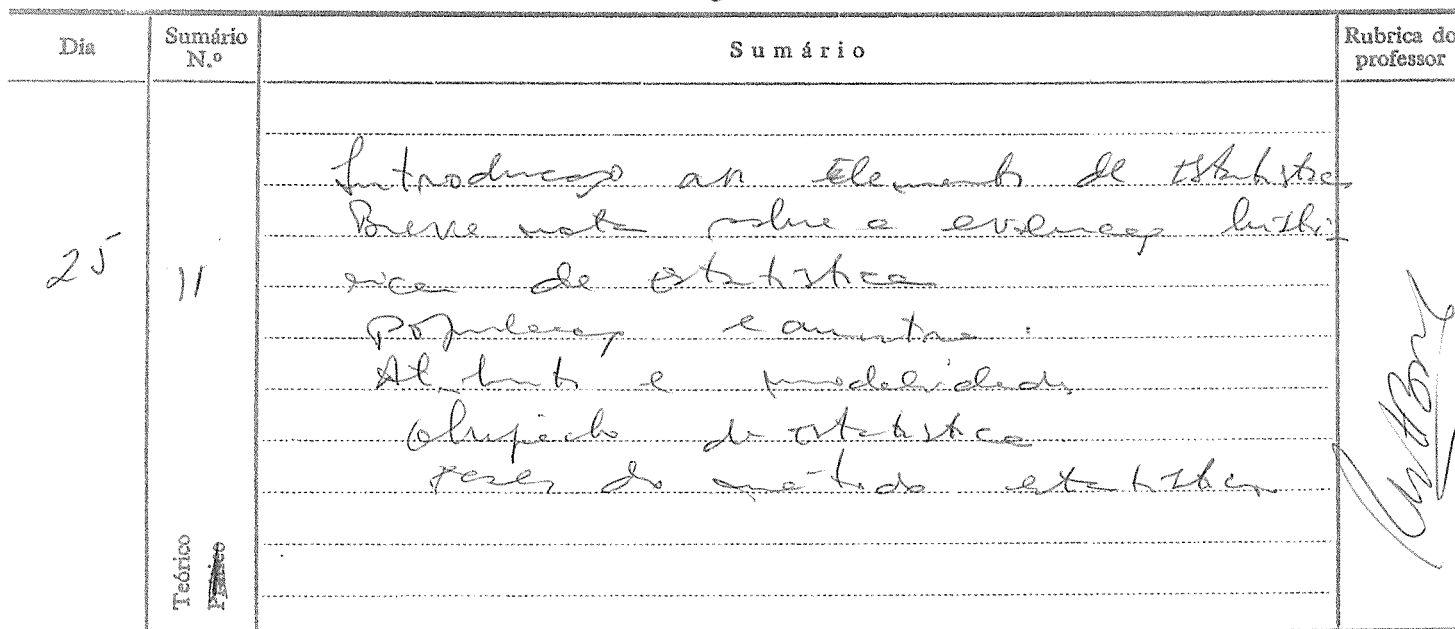 Dia
Sumário N.º
Sumário
Rubrica do professor
25
11
Introdução aos Elementos de Estatística
Breve nota sobre a evolução histó-
rica da estatística
População e amostra.
Atributos e modalidades
de estatística
Fases do método estatístico
Teórico
Prático